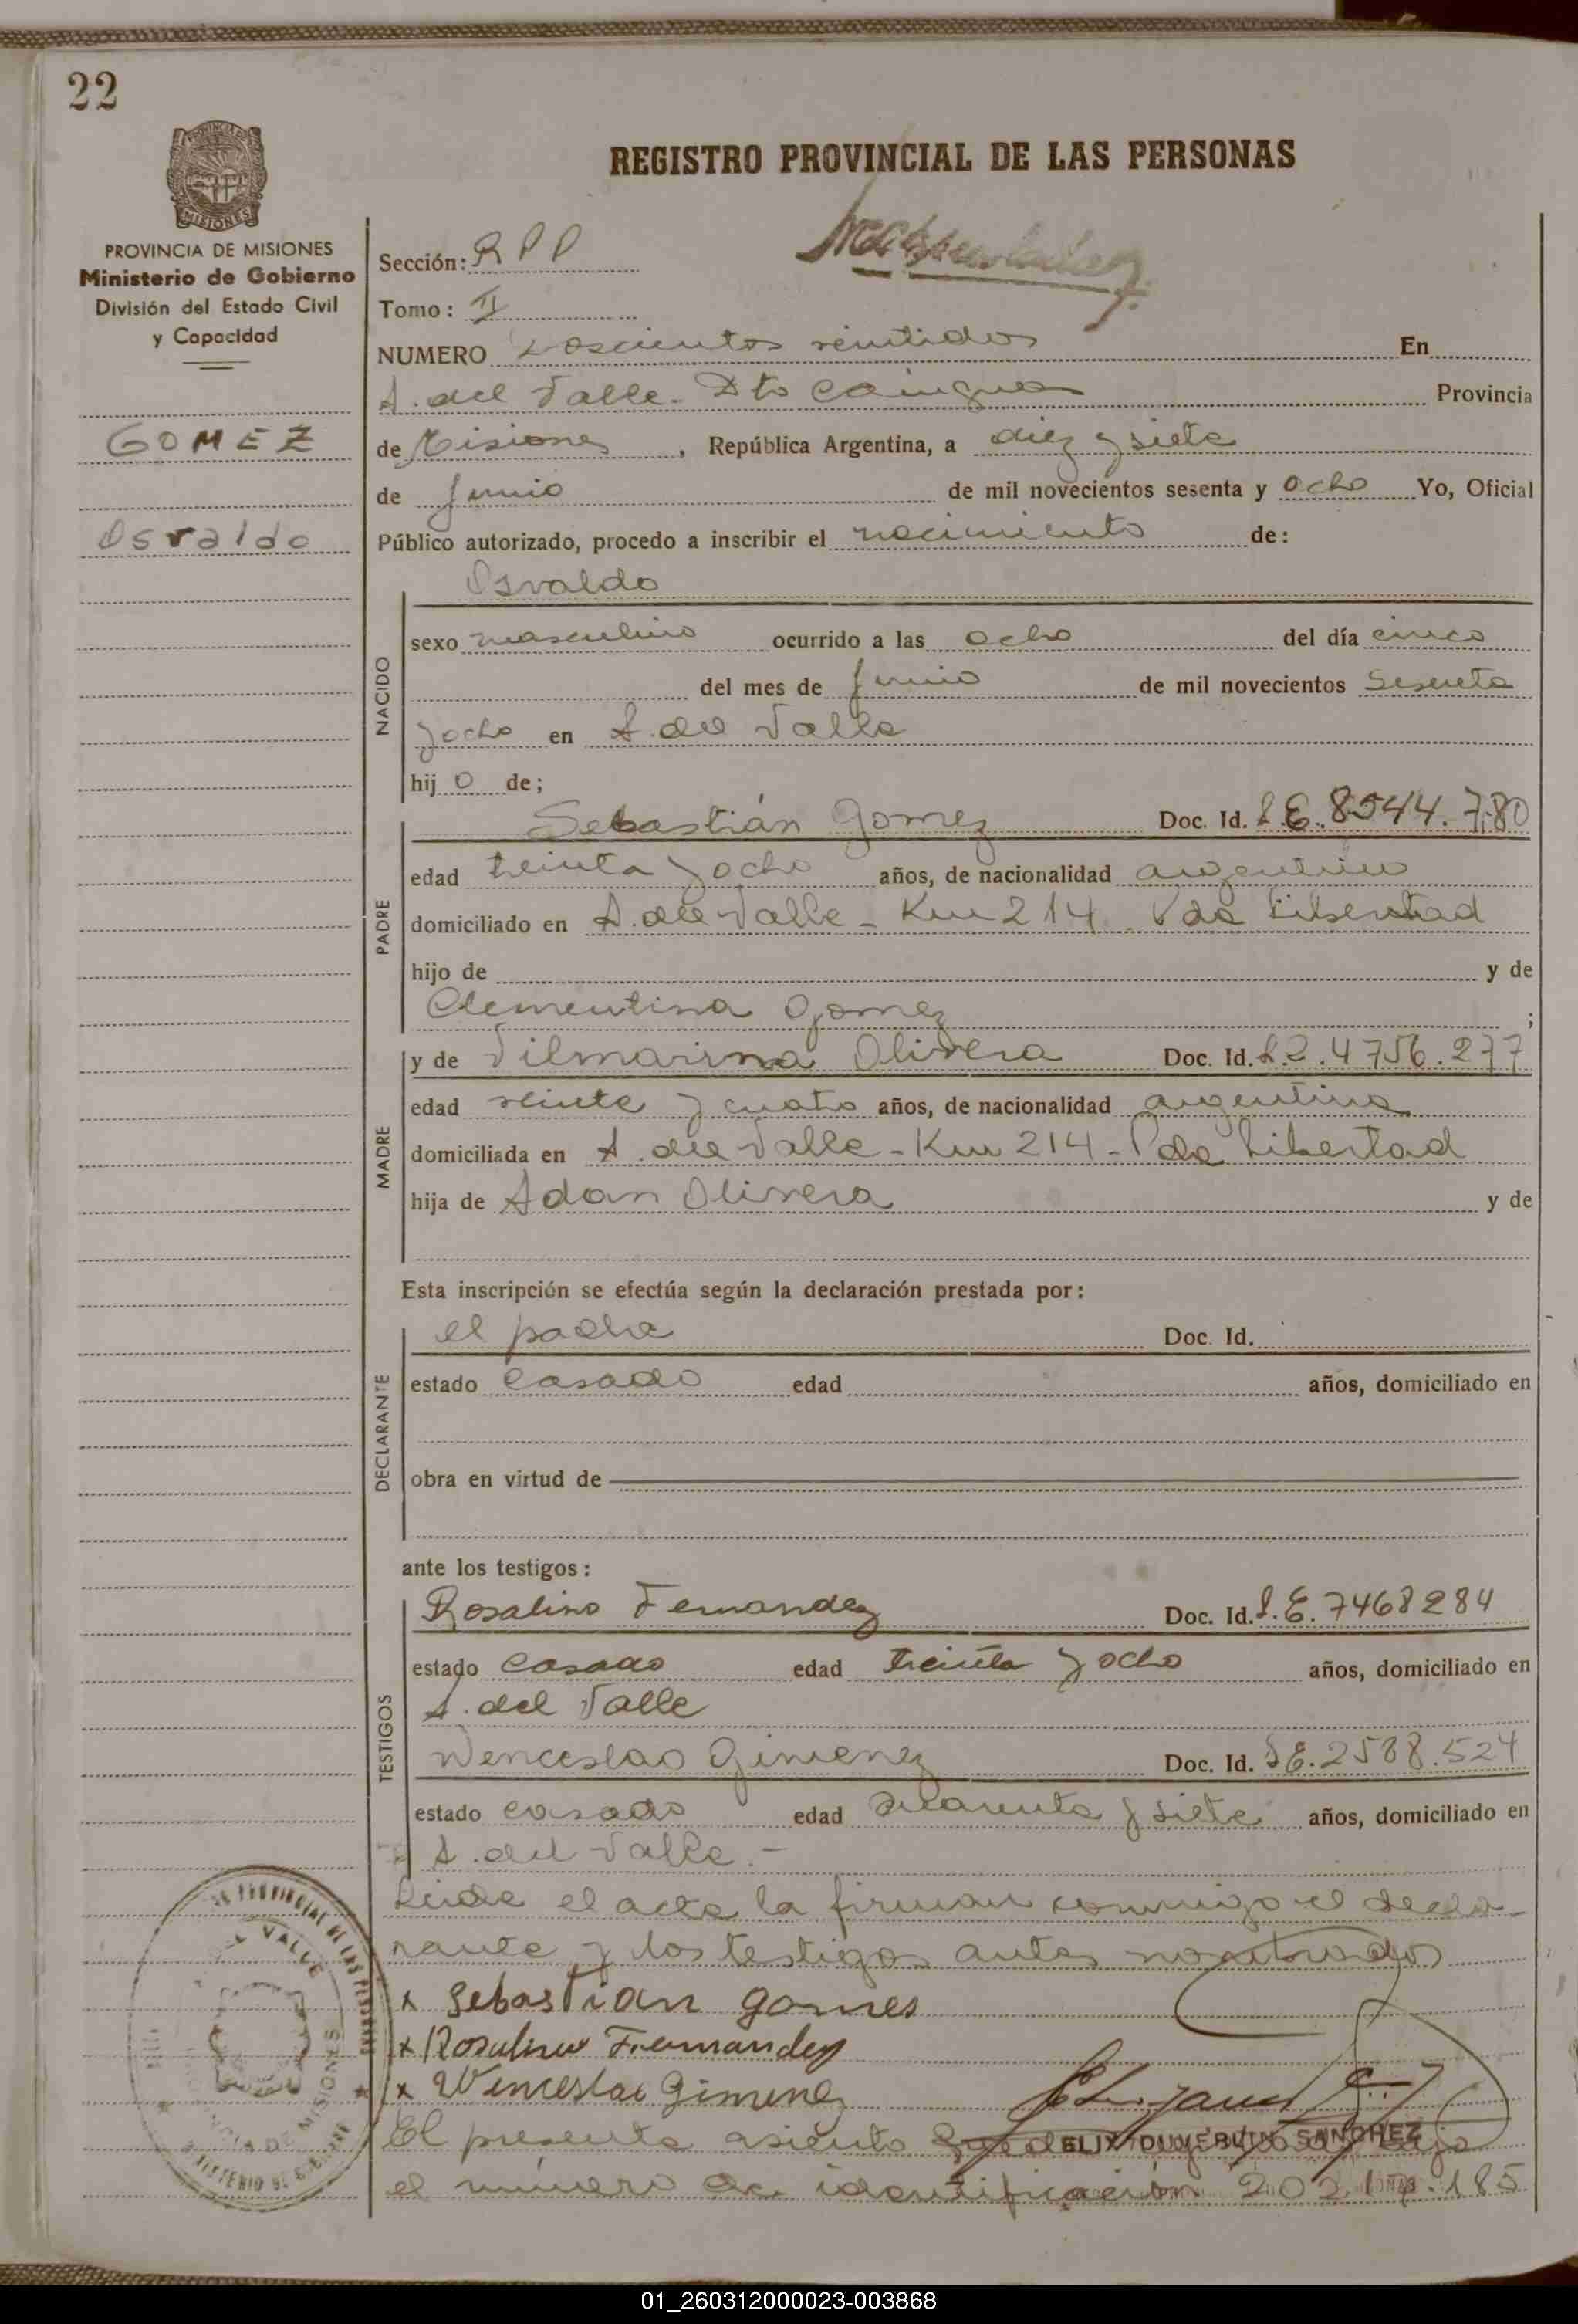 22
REGISTRO PROVINCIAL DE LAS PERSONAS
PROVINCIA DE MISIONES
Ministerio de Gobierno
División del Estado Civil
y Capacidad
GOMEZ
Osvaldo
Sección: R P P
Tomo: II
NUMERO Doscientos veintidos En
A. del Valle - Dto Cainguas Provincia
de Misiones, República Argentina, a diez y siete
de Junio de mil novecientos sesenta y ocho Yo, Oficial
Público autorizado, procedo a inscribir el nacimiento de:
Osvaldo
NACIDO
sexo masculino ocurrido a las ocho del día cinco
del mes de Junio de mil novecientos sesenta
y ocho en A. del Valle
hij o de;
PADRE
Sebastián Gomez Doc. Id. L.E. 8544.780
edad treinta y ocho años, de nacionalidad argentino
domiciliado en A. del Valle - Km 214. Pda Libertad
hijo de y de
Clementina Gomez ;
MADRE
y de Vilmarina Olivera Doc. Id. L.C. 4756.277
edad veinte y cuatro años, de nacionalidad argentina
domiciliada en A. del Valle - Km 214 - Pda Libertad
hija de Adan Olivera y de
Esta inscripción se efectúa según la declaración prestada por:
DECLARANTE
el padre Doc. Id.
estado casado edad años, domiciliado en
obra en virtud de
ante los testigos:
TESTIGOS
Rosalino Fernandez Doc. Id. L.E. 7468284
estado casado edad treinta y ocho años, domiciliado en
A. del Valle
Wenceslao Gimenez Doc. Id. L.E. 2588.524
estado casado edad cuarenta y siete años, domiciliado en
A. del Valle.-
Leida el acta la firman conmigo el decla-
rante y los testigos antes nombrados
x Sebastian gomes
x Rosalino Fernandez
x Wenceslao Gimenez
ELIX DUVERLIN SANCHEZ
El presente asiento bajo
el número de identificación 20.217.185
01_260312000023-003868